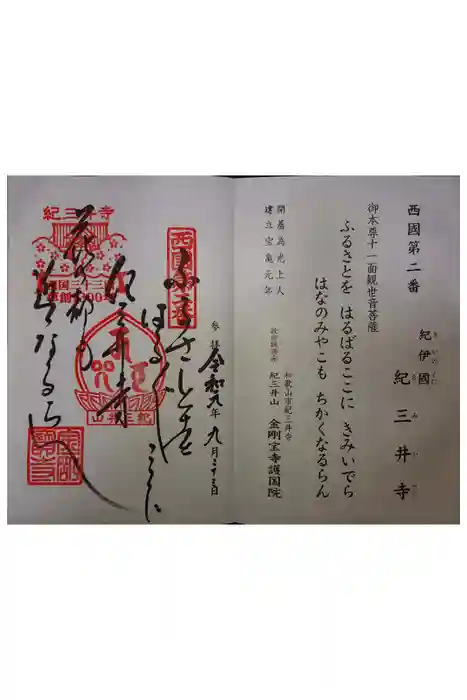 西國第二番
紀伊國
きいのくに
紀三井寺
きみいでら
御本尊十一面観世音菩薩
ふるさとを はるばるここに きみいでら
はなのみやこも ちかくなるらん
開基為光上人
建立宝亀元年
和歌山市紀三井寺
紀三井山 金剛宝寺護国院
参拝 令和元年九月二十三日
ふるさとを
はるばるここに
紀三井寺
花の都も
近くなるらん
紀三井寺
紀三井山